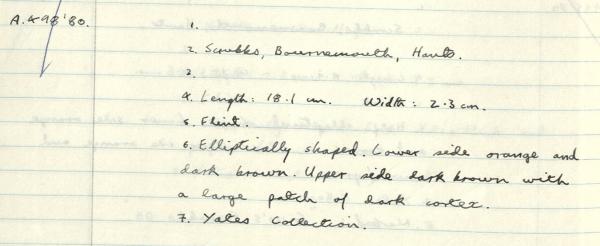 A. & 98 '80.
1.
2. Scrubbs, Bournemouth, Hants.
3.
4. Length: 18.1 cm. Width: 2.3 cm.
5. Flint.
6. Elliptically shaped. Lower side orange and
dark brown. Upper side dark brown with
a large patch of dark cortex.
7. Yates Collection.